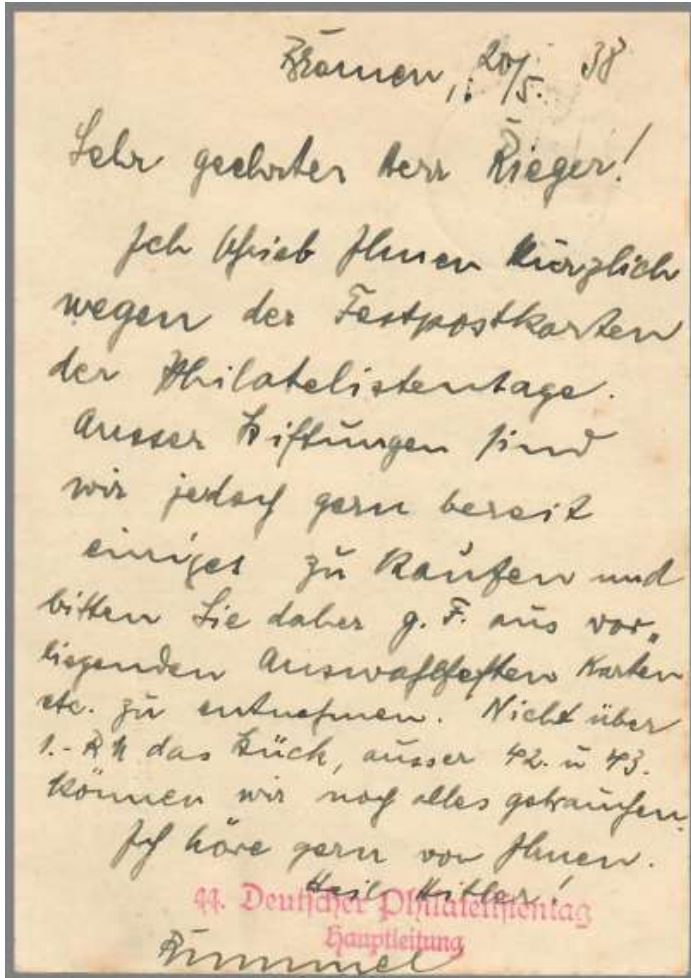 Bremen, 20/5. 38
Sehr geehrter Herr Rieger!
Ich schrieb Ihnen kürzlich
wegen der Festpostkarten
der Philatelistentage.
Ausser Stiftungen sind
wir jedoch gern bereit
einiges zu kaufen und
bitten Sie daher g. F. aus vor„
liegenden Auswahlheften Karten
etc. zu entnehmen. Nicht über
1.- RM das Stück, ausser 42. u 43.
können wir noch alles gebrauchen.
Ich höre gern von Ihnen.
Heil Hitler!
44. Deutscher Philatelistentag
Hauptleitung